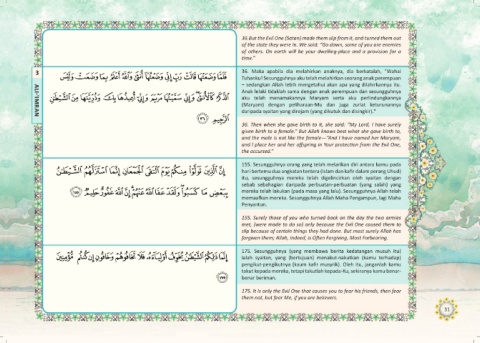 36.But the Evil One (Satan) made them slip from it, and turned them out
of the state they were in. We said: "Go down, some of you are enemies
of others. On earth will be your dwelling-place and a provision for a
time."
3
ALI 'IMRAN
فَلَمَّا وَضَعَتْهَا قَالَتْ رَبِّ إِنِّي وَضَعْتُهَا أُنثَىٰ وَاللَّهُ أَعْلَمُ بِمَا وَضَعَتْ وَلَيْسَ
الذَّكَرُ كَالْأُنثَىٰ وَإِنِّي سَمَّيْتُهَا مَرْيَمَ وَإِنِّي أُعِيذُهَا بِكَ وَذُرِّيَّتَهَا مِنَ الشَّيْطَانِ
الرَّجِيمِ ﴿٣٦﴾
36. Maka apabila dia melahirkan anaknya, dia berkatalah, "Wahai
Tuhanku! Sesungguhnya aku telah melahirkan seorang anak perempuan
– sedangkan Allah lebih mengetahui akan apa yang dilahirkannya itu.
Anak lelaki tidaklah sama dengan anak perempuan dan sesungguhnya
aku telah menamakannya Maryam serta aku perlindungkannya
(Maryam) dengan peliharaan-Mu dan juga zuriat keturunannya
daripada syaitan yang direjam (yang dikutuk dan disingkir)."
36. Then when she gave birth to it, she said: "My Lord, I have surely
given birth to a female." But Allah knows best what she gave birth to,
and the male is not like the female—"And I have named her Maryam,
and I place her and her offspring in Your protection from the Evil One,
the accursed."
إِنَّ الَّذِينَ تَوَلَّوْا مِنكُمْ يَوْمَ الْتَقَى الْجَمْعَانِ إِنَّمَا اسْتَزَلَّهُمُ الشَّيْطَانُ
بِبَعْضِ مَا كَسَبُوا وَلَقَدْ عَفَا اللَّهُ عَنْهُمْ إِنَّ اللَّهَ غَفُورٌ حَلِيمٌ ﴿١٥٥﴾
155. Sesungguhnya orang yang telah melarikan diri antara kamu pada
hari bertemu dua angkatan tentera (Islam dan kafir dalam perang Uhud)
itu, sesungguhnya mereka telah digelincirkan oleh syaitan dengan
sebab sebahagian daripada perbuatan-perbuatan (yang salah) yang
mereka telah lakukan (pada masa yang lalu). Sesungguhnya Allah telah
memaafkan mereka. Sesungguhnya Allah Maha Pengampun, lagi Maha
Penyantun.
155. Surely those of you who turned back on the day the two armies
met, (were made to do so) only because the Evil One caused them to
slip because of certain things they had done. But most surely Allah has
forgiven them; Allah, indeed, is Often Forgiving, Most Forbearing.
إِنَّمَا ذَٰلِكُمُ الشَّيْطَانُ يُخَوِّفُ أَوْلِيَاءَهُ فَلَا تَخَافُوهُمْ وَخَافُونِ إِن كُنتُم مُّؤْمِنِينَ
﴿١٧٥﴾
175. Sesungguhnya (yang membawa berita kedatangan musuh itu)
ialah syaitan, yang (bertujuan) menakut-nakutkan (kamu terhadap)
pengikut-pengikutnya (kaum kafir musyrik). Oleh itu, janganlah kamu
takut kepada mereka, tetapi takutilah kepada-Ku, sekiranya kamu benar-
benar beriman.
175. It is only the Evil One that causes you to fear his friends, then fear
them not, but fear Me, if you are believers.